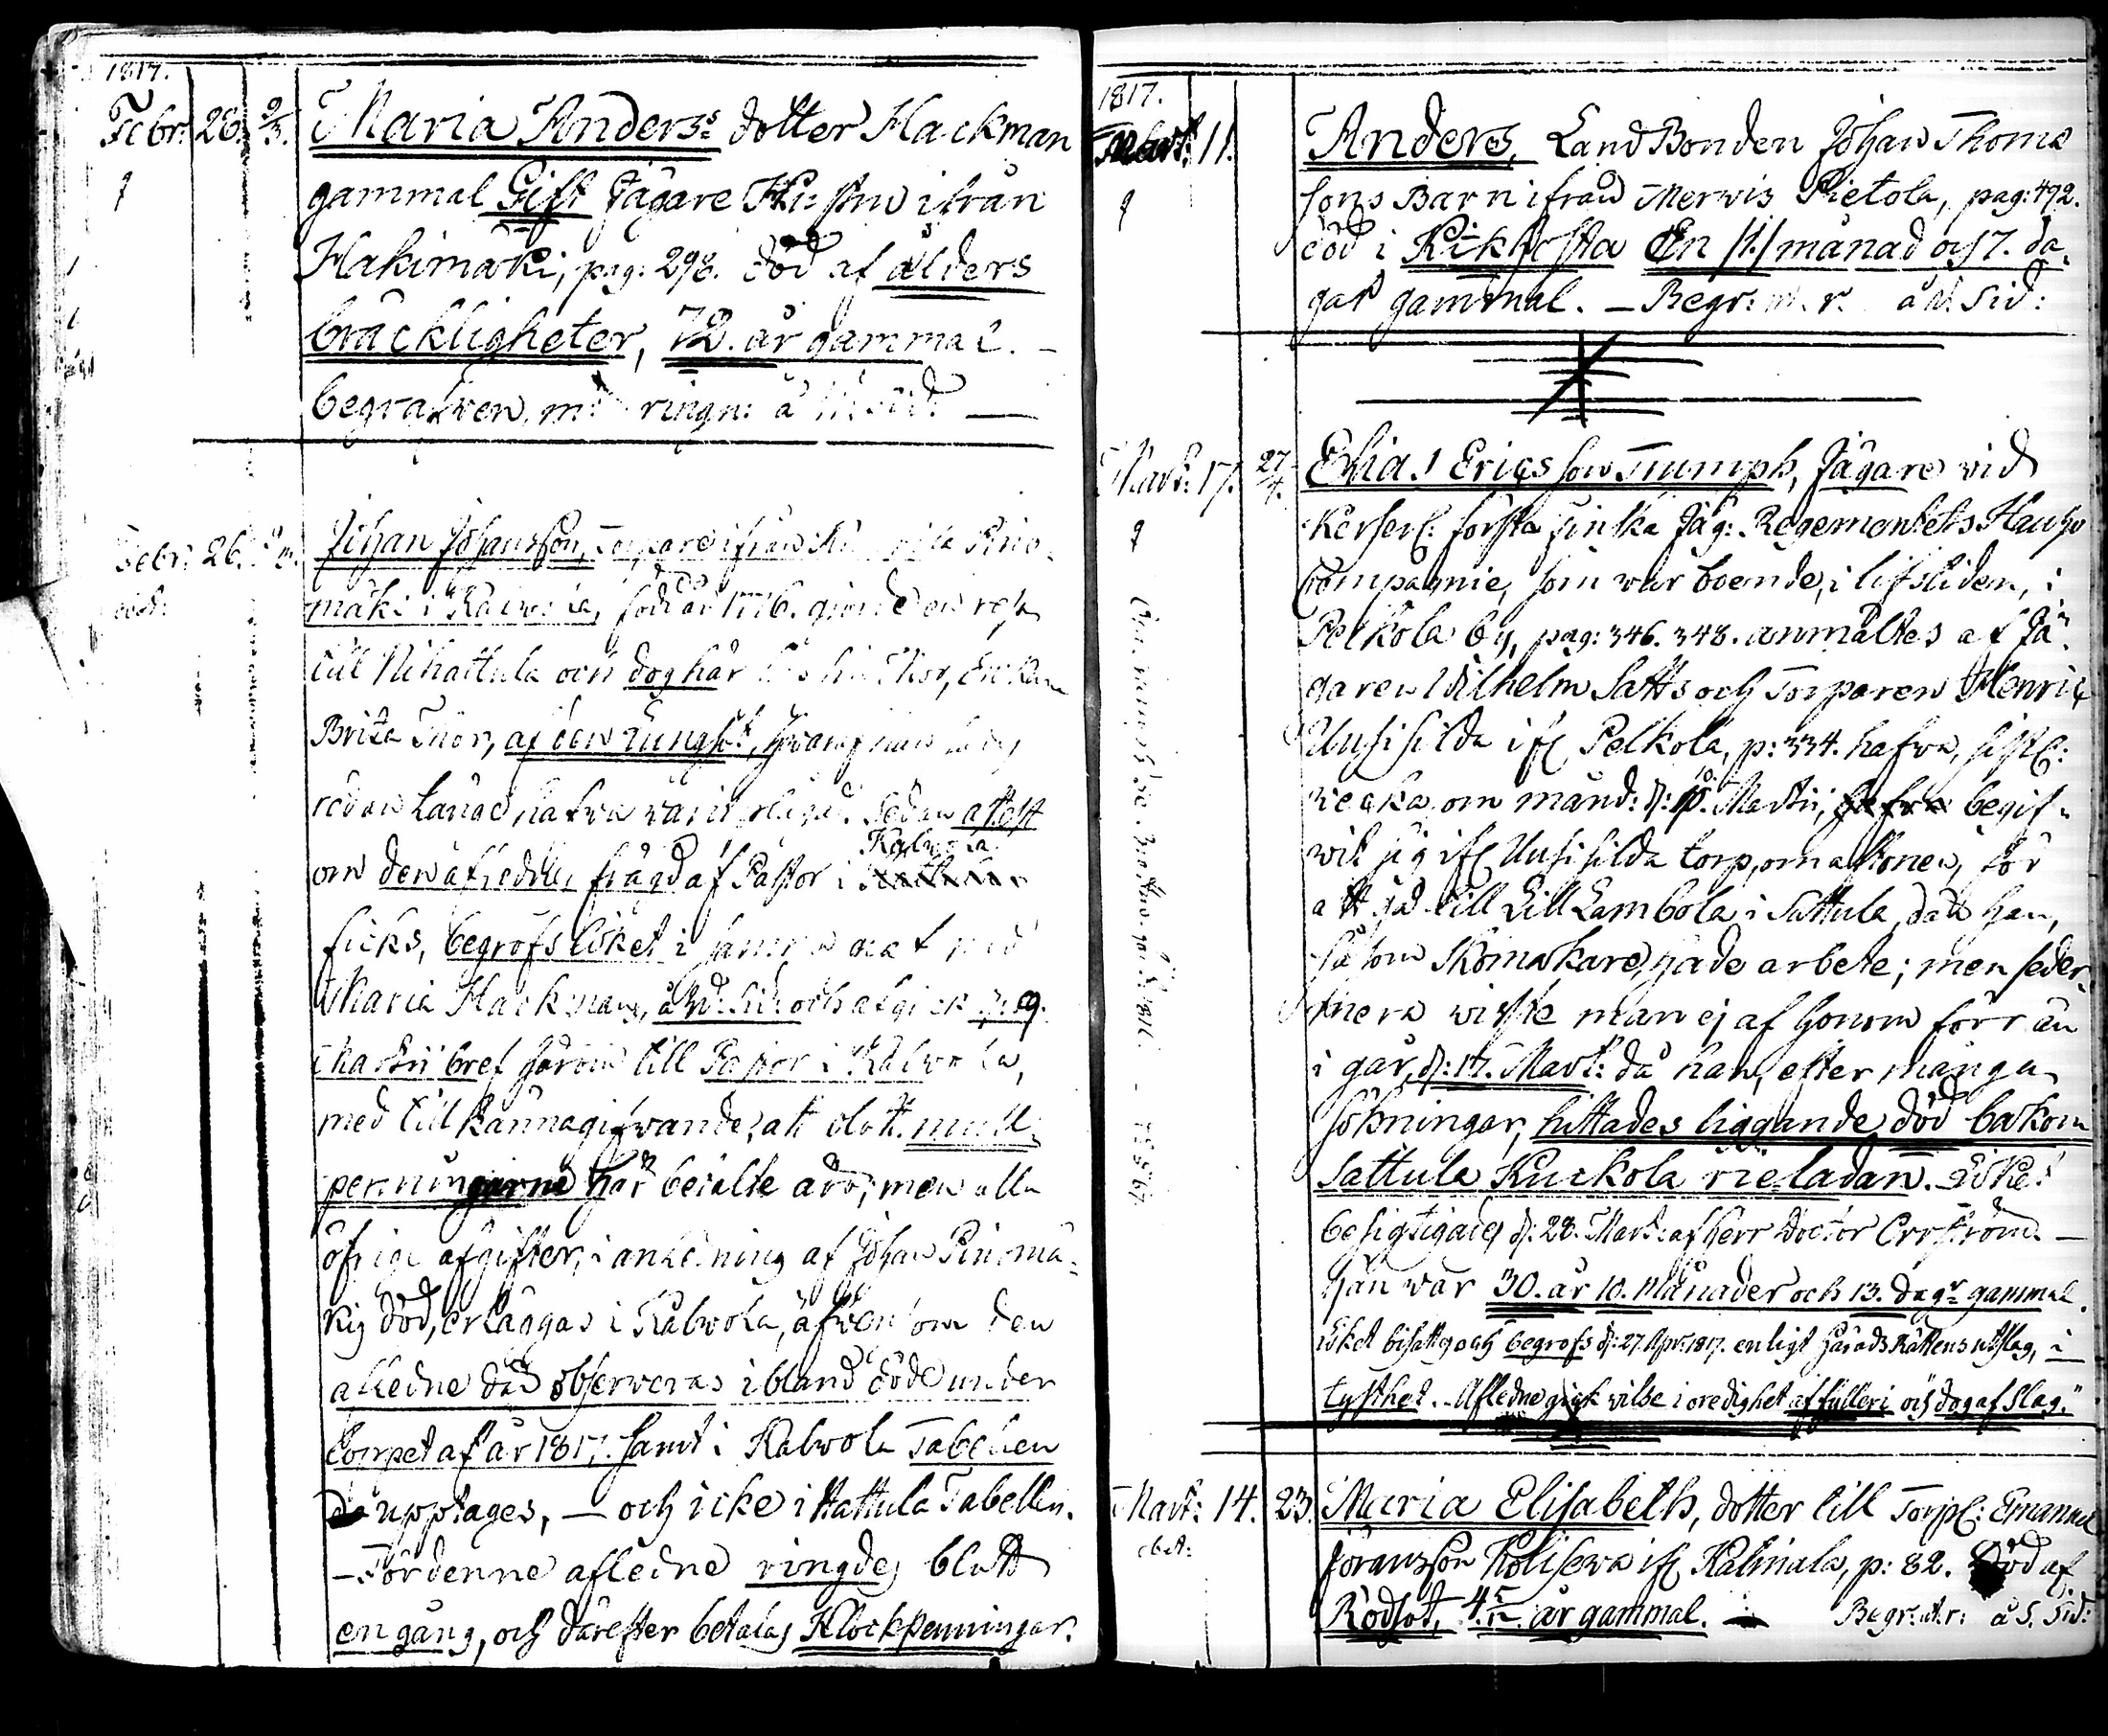 1817.
Febr: 28. 9/3. Maria Anders: dotter Hackman
gammal Gift Jägare Hustru ifrån
Hakimäki, pag: 298. död af ålders
bräckligheter, 72. år gammal. –
begrafwen, m: ringn: å N: sid: —
Febr: 26.
Johan Johansson, Torpare ifrån
mäki i Kalwola, född år 1776. giorde en resa
till Nihattula och dog här Thor, Enkan
Brita Thor, af Lungsot, hwaraf han
redan länge hafwa warit Sedan attest
Kalwola
om den aflednes frägd af Pastor i
ficks, begrofs liket i samma graf med
Maria Hackman, å N: sid: och afgick d: 9.
Martii bref härom till Pastor i Kalwola,
med tillkännagifwande, att blott mull-
penningarne här betalte äro; men alla
öfrige afgifter, i anledning af Johan Pinomä-
kis död, erläggas i Kalwola, äfwen som den
afledne där observeras ibland döde under
loppet af år 1817. samt i Kalwola Tabellen
då upptages, – och icke i Hattula Tabellen.
– För denne afledne ringdes blott
en gång, och därefter betalas Klockpenningar.
1817.
Mart: 11. Anders, LandBonden Johan Thoms
sons Barn ifrån Merwis Pietola, pag: 492.
död i Rikhosta En /1./ månad och 7. da-
gar gammal. – Begr: m. r. å N. Sid:
Mart: 17. 27/4. Elias Ericsson Triumph, Jägare vid
Kejserl: första finska Jäg: Regementets Hauho
Compagnie, som war boende, i lifstiden, i
Pelkola by, pag: 346. 348. anmältes af Jä-
garen Wilhelm Satts och Torparen Henric
Uusisilda ifr Pelkola, p: 334. hafwa, sistl:
wecka, om månd: d: 10. Martii, begif-
wit sig ifr Uusisilda torp, om aftonen, för
att gå till Lill Lambola i Sattula, där han,
såsom Skomakare, hade arbete; men seder-
mera wisste man ej af honom förr än
i går, d: 17. Mart: då han, efter många
sökningar, hittades liggande död bakom
Sattula Kuckola rieladan. Liket
besigtigades d: 28. Mart: af Herr Doctor Orrström. –
Han war 30. år 10. Månader och 13. dagr gammal.
Liket bisattes och begrofs d: 27. Apr: 1817. enligt HäradsRättens utslag, i
tysthet. Afledne gick vilse i oredighet af fylleri och dog af Slag."
Mart: 14. 23. Maria Elisabeth, dotter till Torp: Emanuel
Göransson Kolisewa ifr Kalmula, p: 82. Död af
Rödsot, år gammal. — Begr: m. r: å S. Sid: